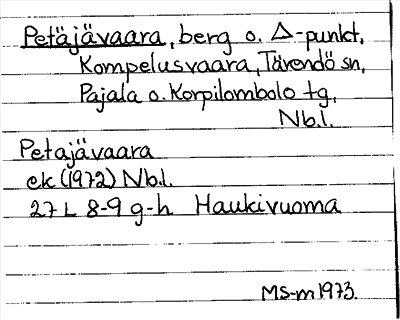 Petäjävaara, berg o. Δ-punkt,
Kompelusvaara, Tärendö sn,
Pajala o. Korpilombolo tg,
Nb.l.
Petajävaara
ek (1972) Nb.l.
27 L 8-9 g-h Haukivuoma
MS-m 1973.